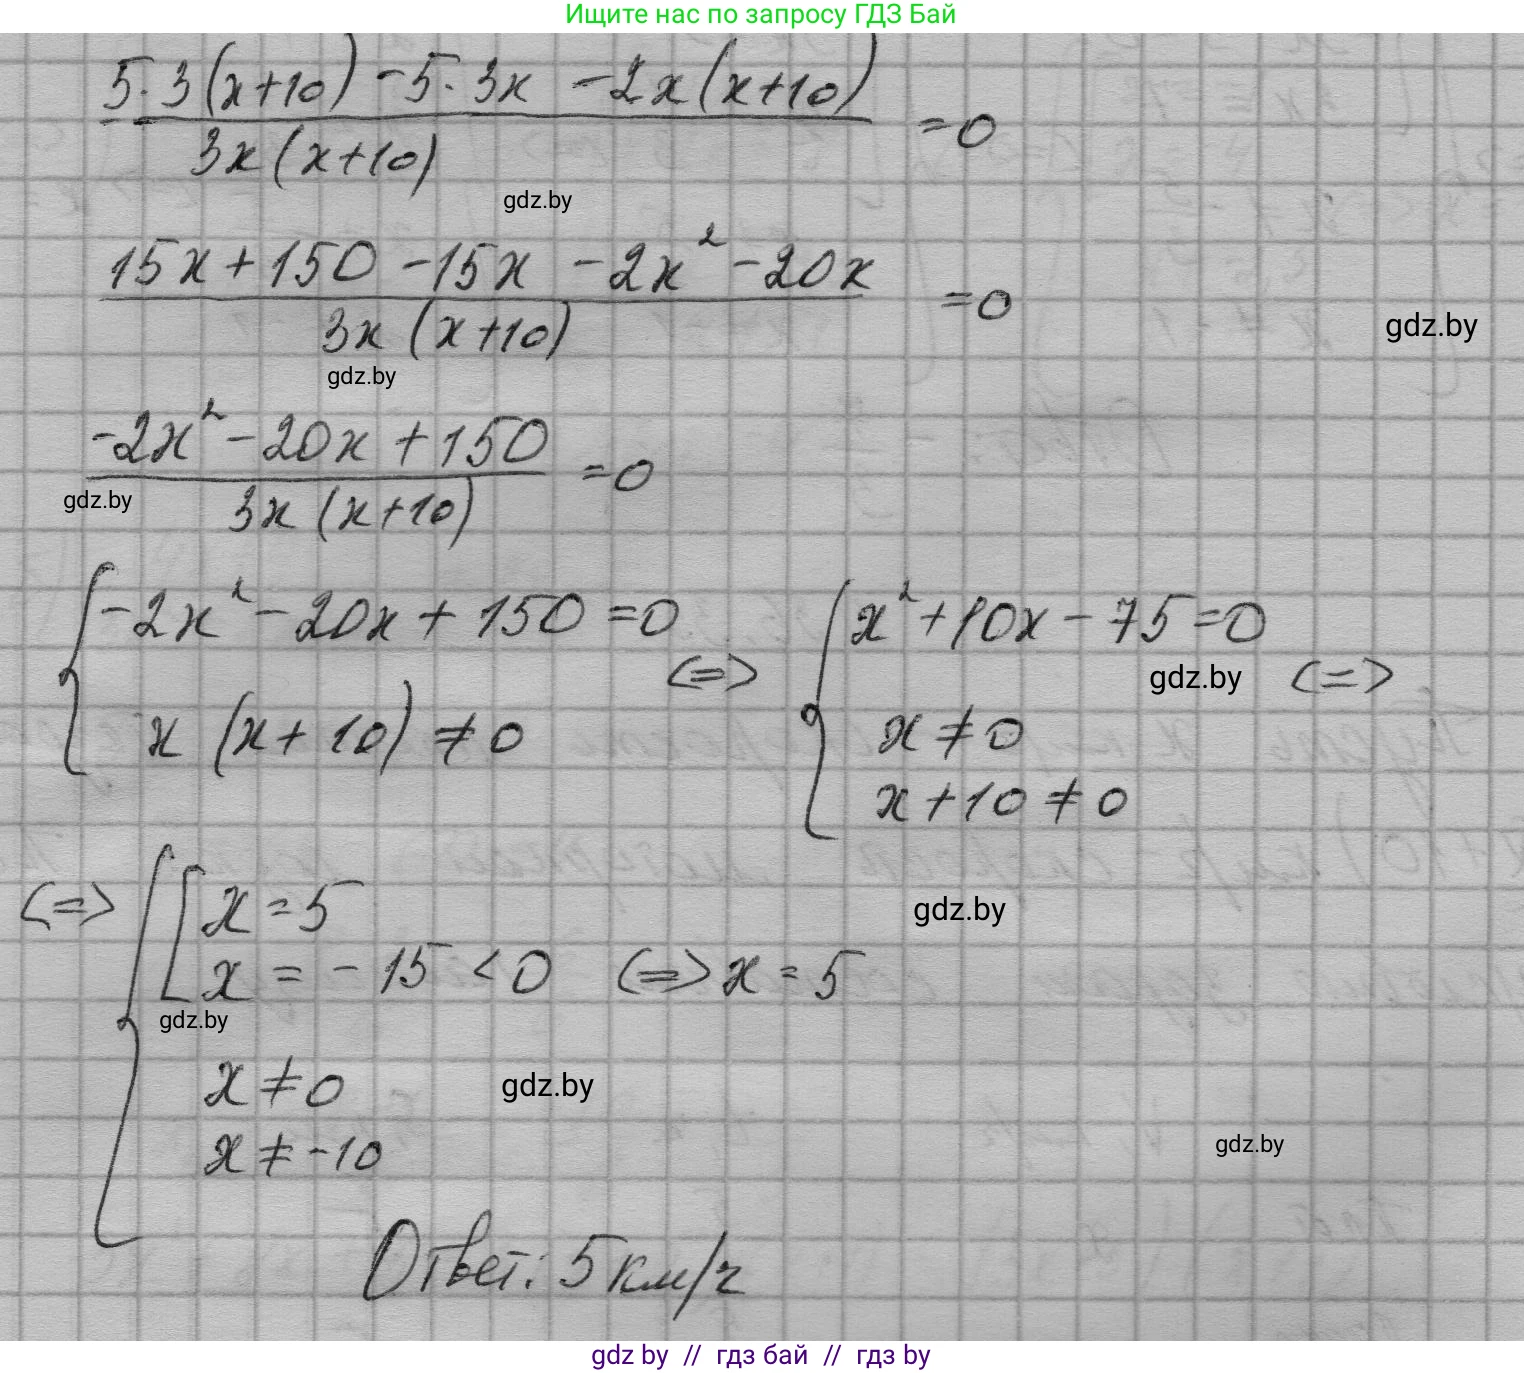 Ищите нас по запросу ГДЗ Бай
5·3(x+10) -5·3x -2x(x+10)
=0
3x(x+10)
gdz.by
15x+150 -15x -2x² -20x
=0
3x(x+10)
gdz.by
gdz.by
-2x² -20x +150
=0
3x(x+10)
gdz.by
{ -2x² -20x + 150 =0
x(x+10) ≠0
<=>
{ x² +10x - 75 =0
x ≠0
x+10 ≠0
gdz.by
<=>
<=> { [ x =5
x = -15 <0 <=> x =5
x ≠0
x ≠ -10
gdz.by
gdz.by
gdz.by
gdz.by
Ответ: 5 км/ч
gdz by // гдз бай // гдз by